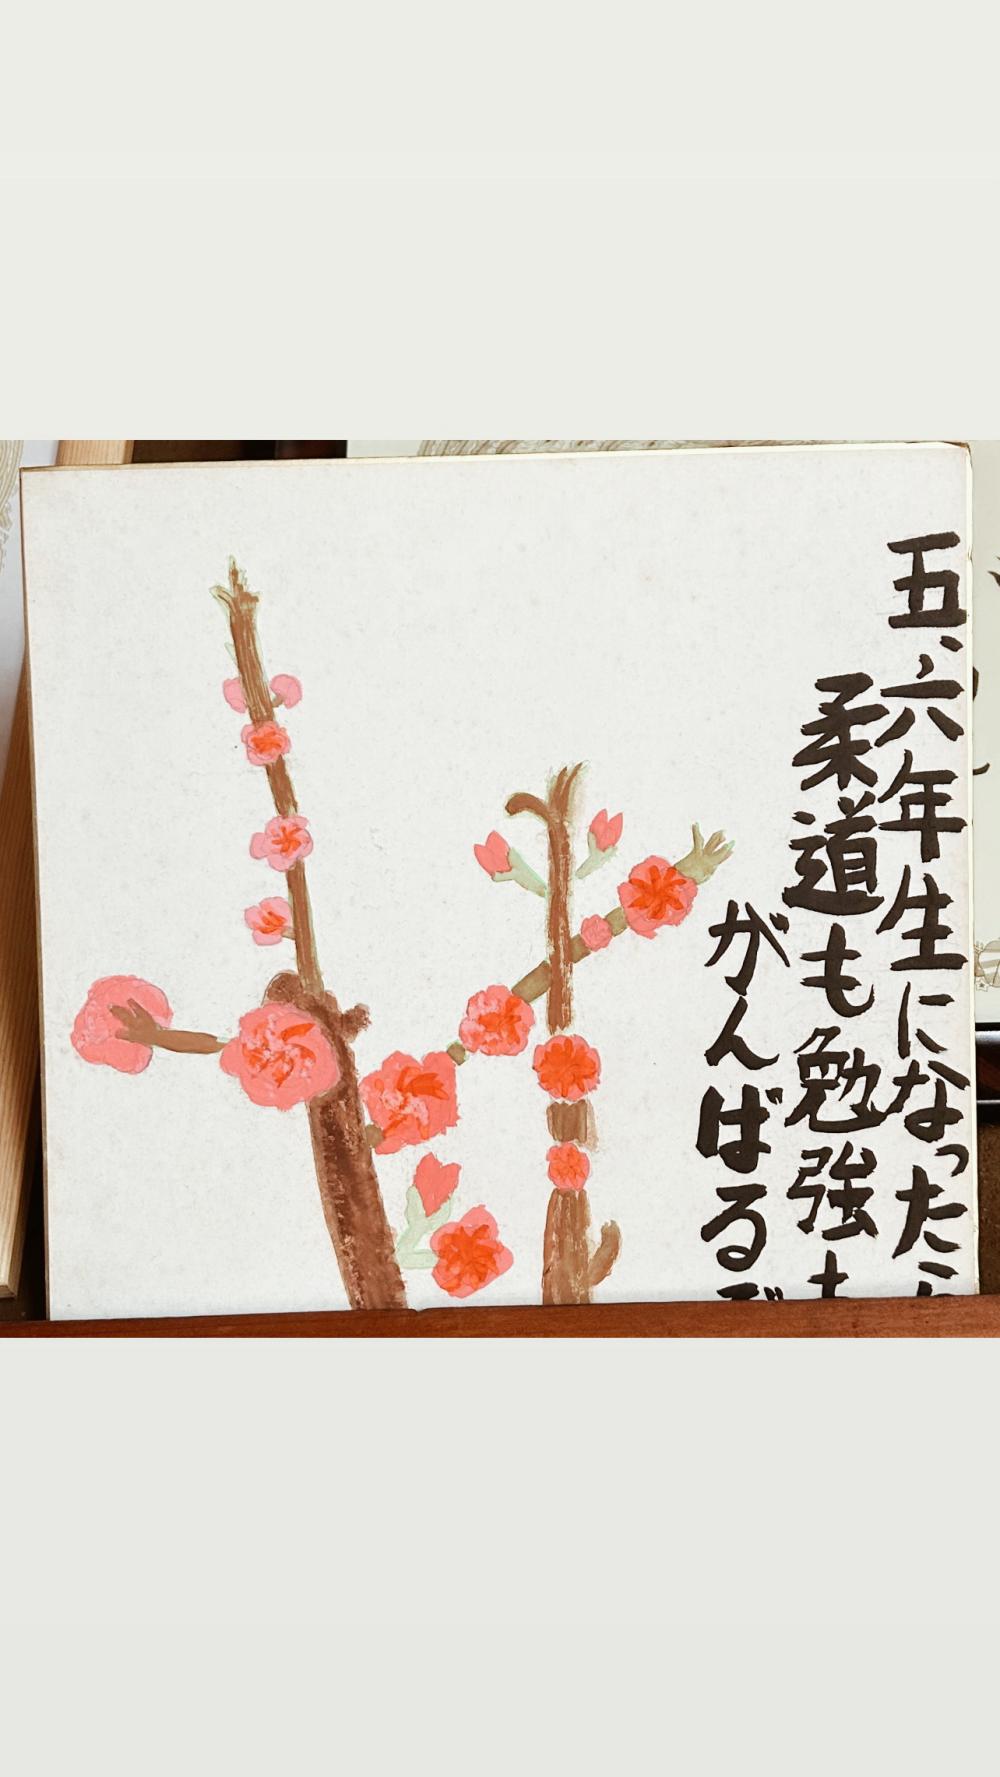 五、六年生になったら
柔道も勉強も
がんばるぞ